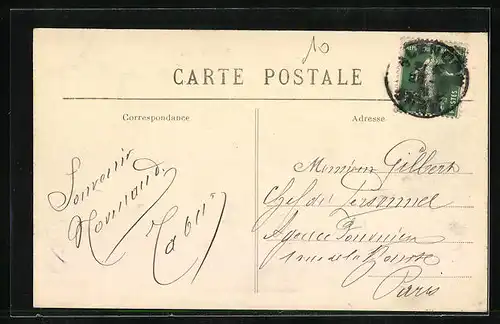 10
CARTE POSTALE
Correspondance
Adresse
Souvenir
Normand.
Monsieur Gilbert
Chef du Personnel
Agence Fournier
1 rue de la Bourse
Paris